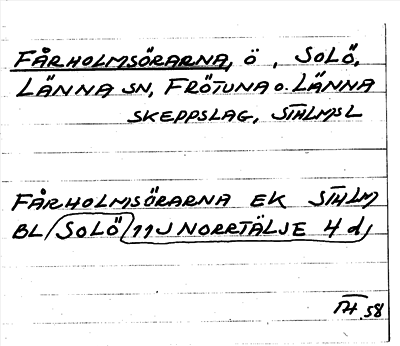 FÅRHOLMSÖRARNA, Ö , SOLÖ,
LÄNNA SN, FRÖTUNA O. LÄNNA
SKEPPSLAG, STHLMS L
FÅRHOLMSÖRARNA EK STHLM
BL SOLÖ 11J NORRTÄLJE 4 d,
TH. 58